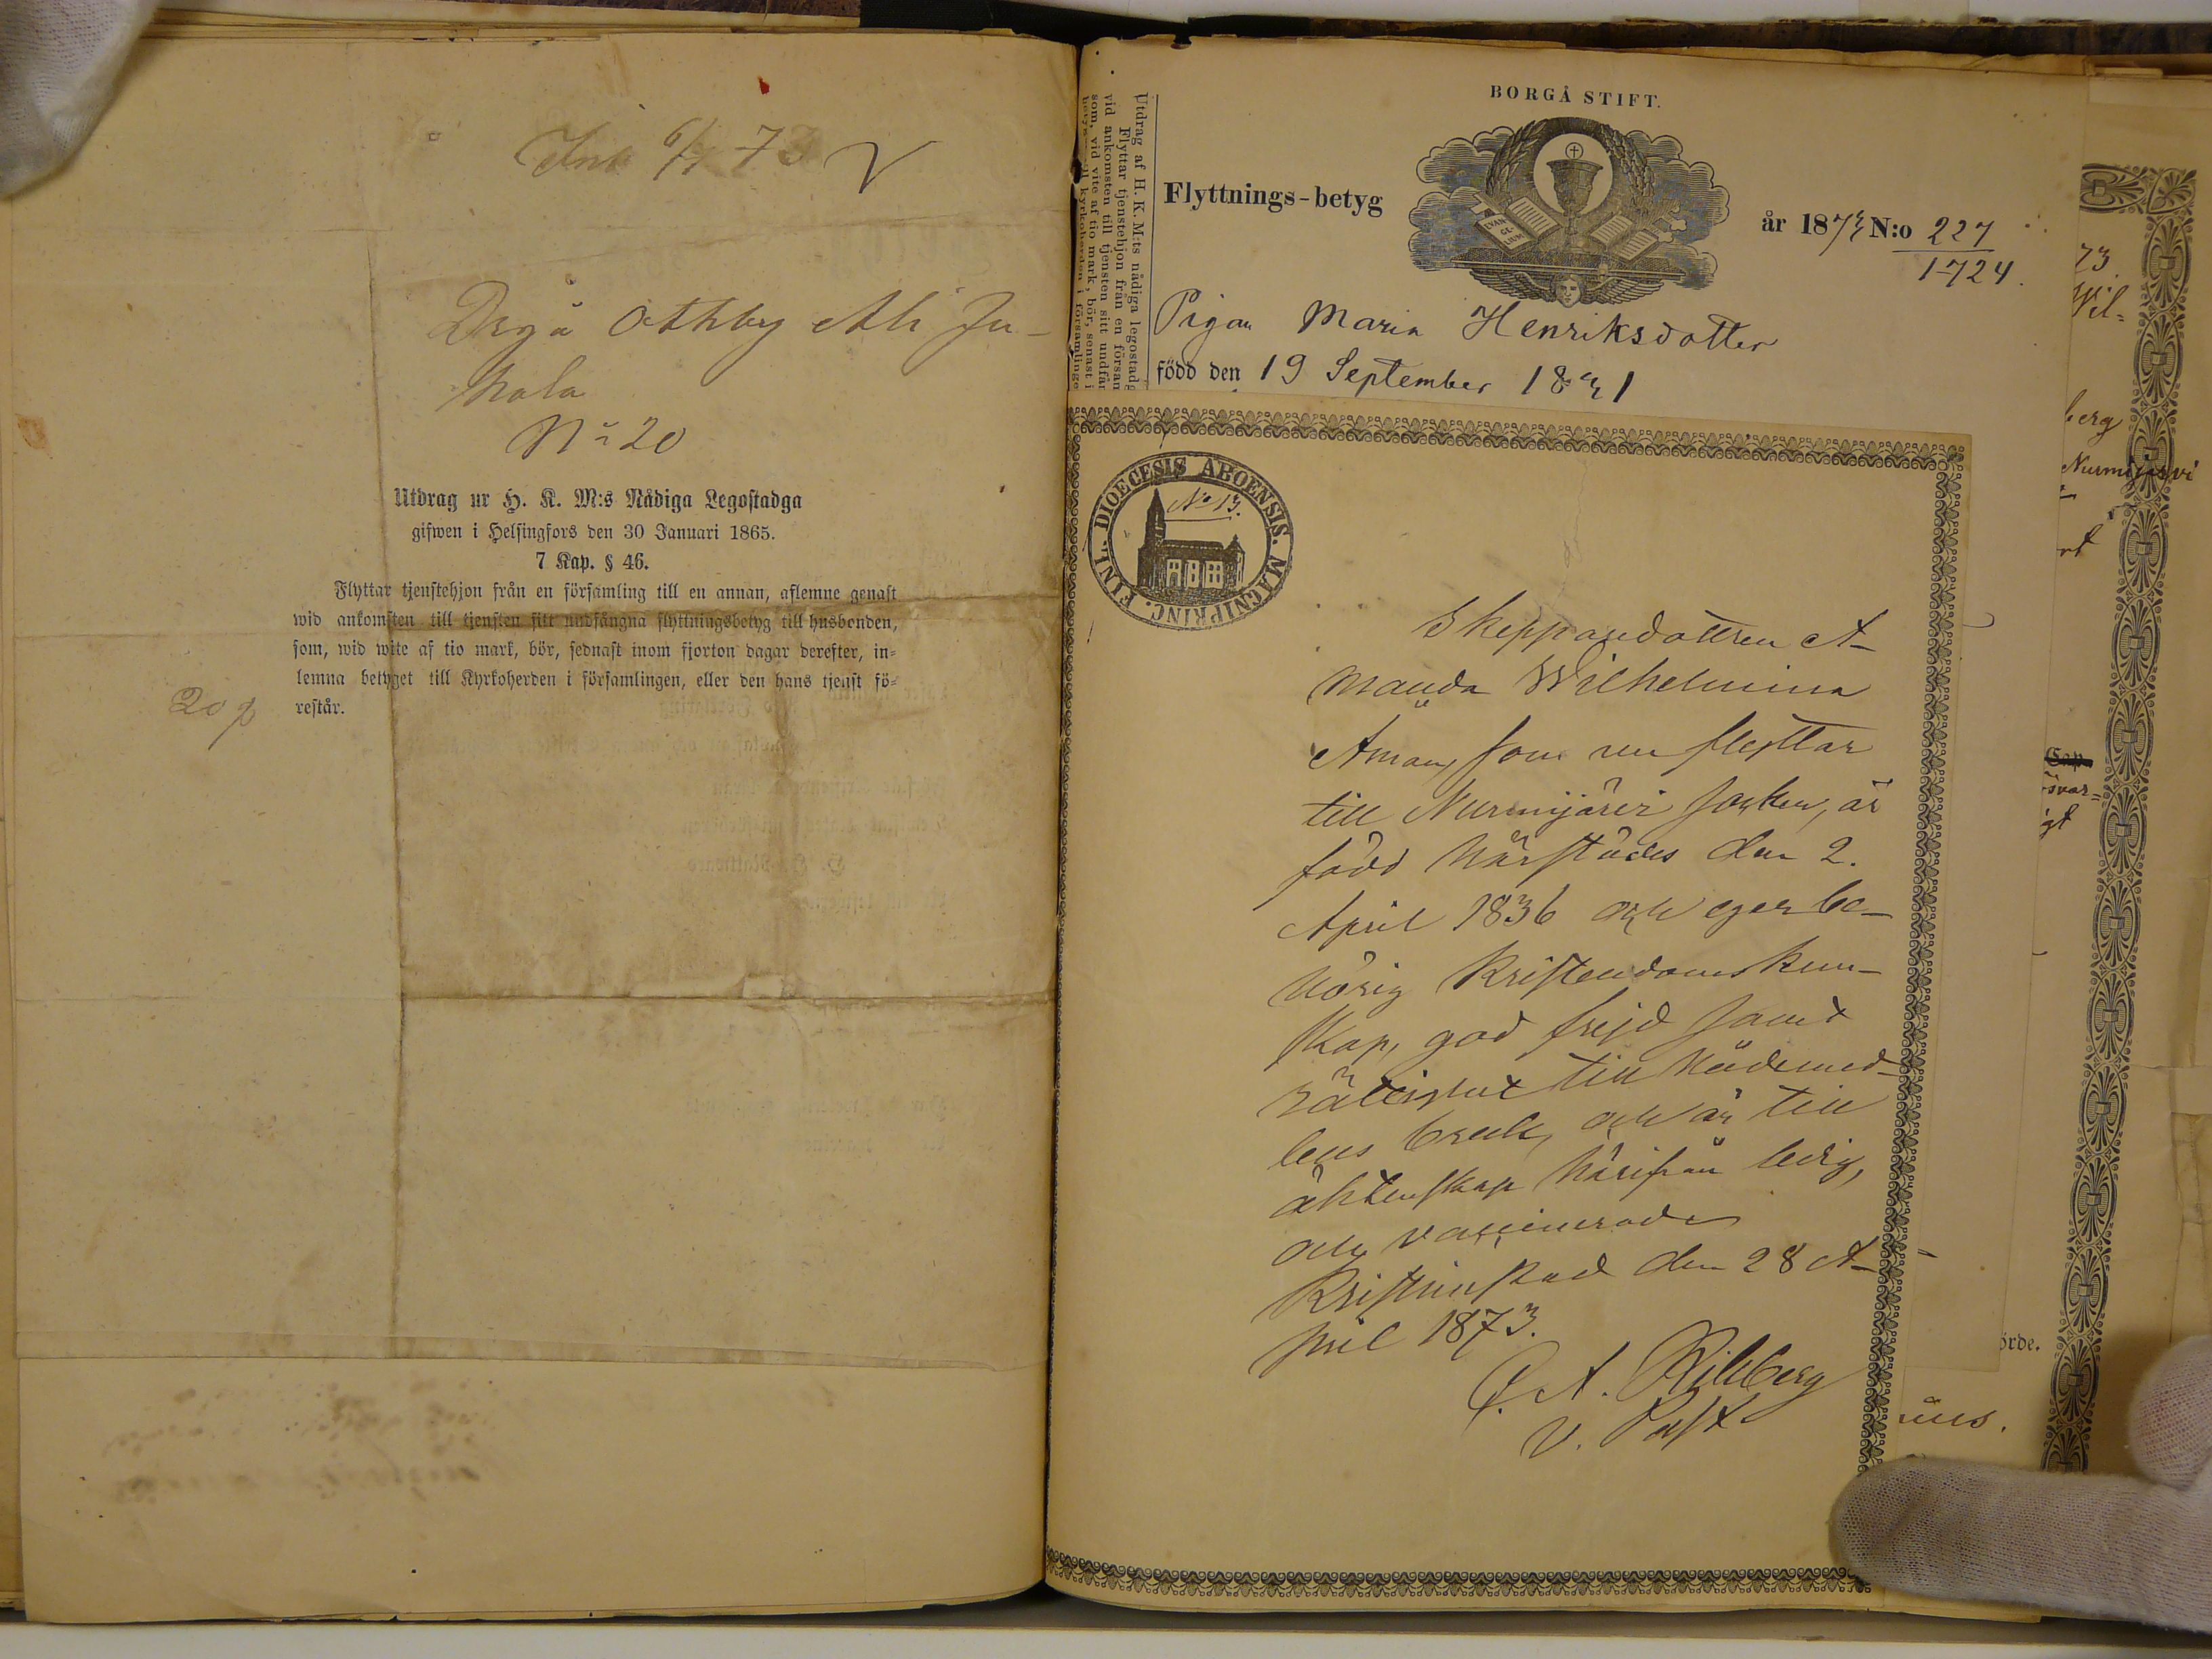 73 V
Ali Ju-
kola
No 20
Utdrag ur H. K. M:s Nådiga Legostadga
gifwen i Helsingfors den 30 Januari 1865.
7 Kap. § 46.
Flyttar tjenstehjon från en församling till en annan, aflemne genast
wid ankomsten till tjensten sitt undfångna flyttningsbetyg till husbonden,
som, wid wite af tio mark, bör, sednast inom fjorton dagar derefter, in-
lemna betyget till Kyrkoherden i församlingen, eller den hans tjenst fö-
restår.
20 p
Utdrag af H. K. M:ts nådiga legostadg
Flyttar tjenstehjon från en försam
vid ankomsten till tjensten sitt undfår
som, vid vite af tio mark, bör, senast i
kyrkoherden i församlinge
BORGÅ STIFT.
EVAN
GE-
LIUM
Flyttnings-betyg
år 1873 N:o 227
1724.
Pigan Maria Henriksdotter
född den 19 September 1841
FINL. DIOECESIS ABOENSIS. MAGNI PRINC.
No 13.
Skeppardottren A-
manda Wilhelmina
Åman, som nu flyttar
till Nurmijärvi socken, är
född härstädes den 2.
April 1836 och eger be-
hörig kristendomskun-
skap, god frejd samt
rättighet till nådemed-
lens bruk, och är till
äktenskap härifrån ledig,
och vaccinerad.
Kristinestad den 28 A-
pril 1873.
V. Past.
73.
Wil-
berg
Nurmijärvi
rt
svar-
gt
örde.